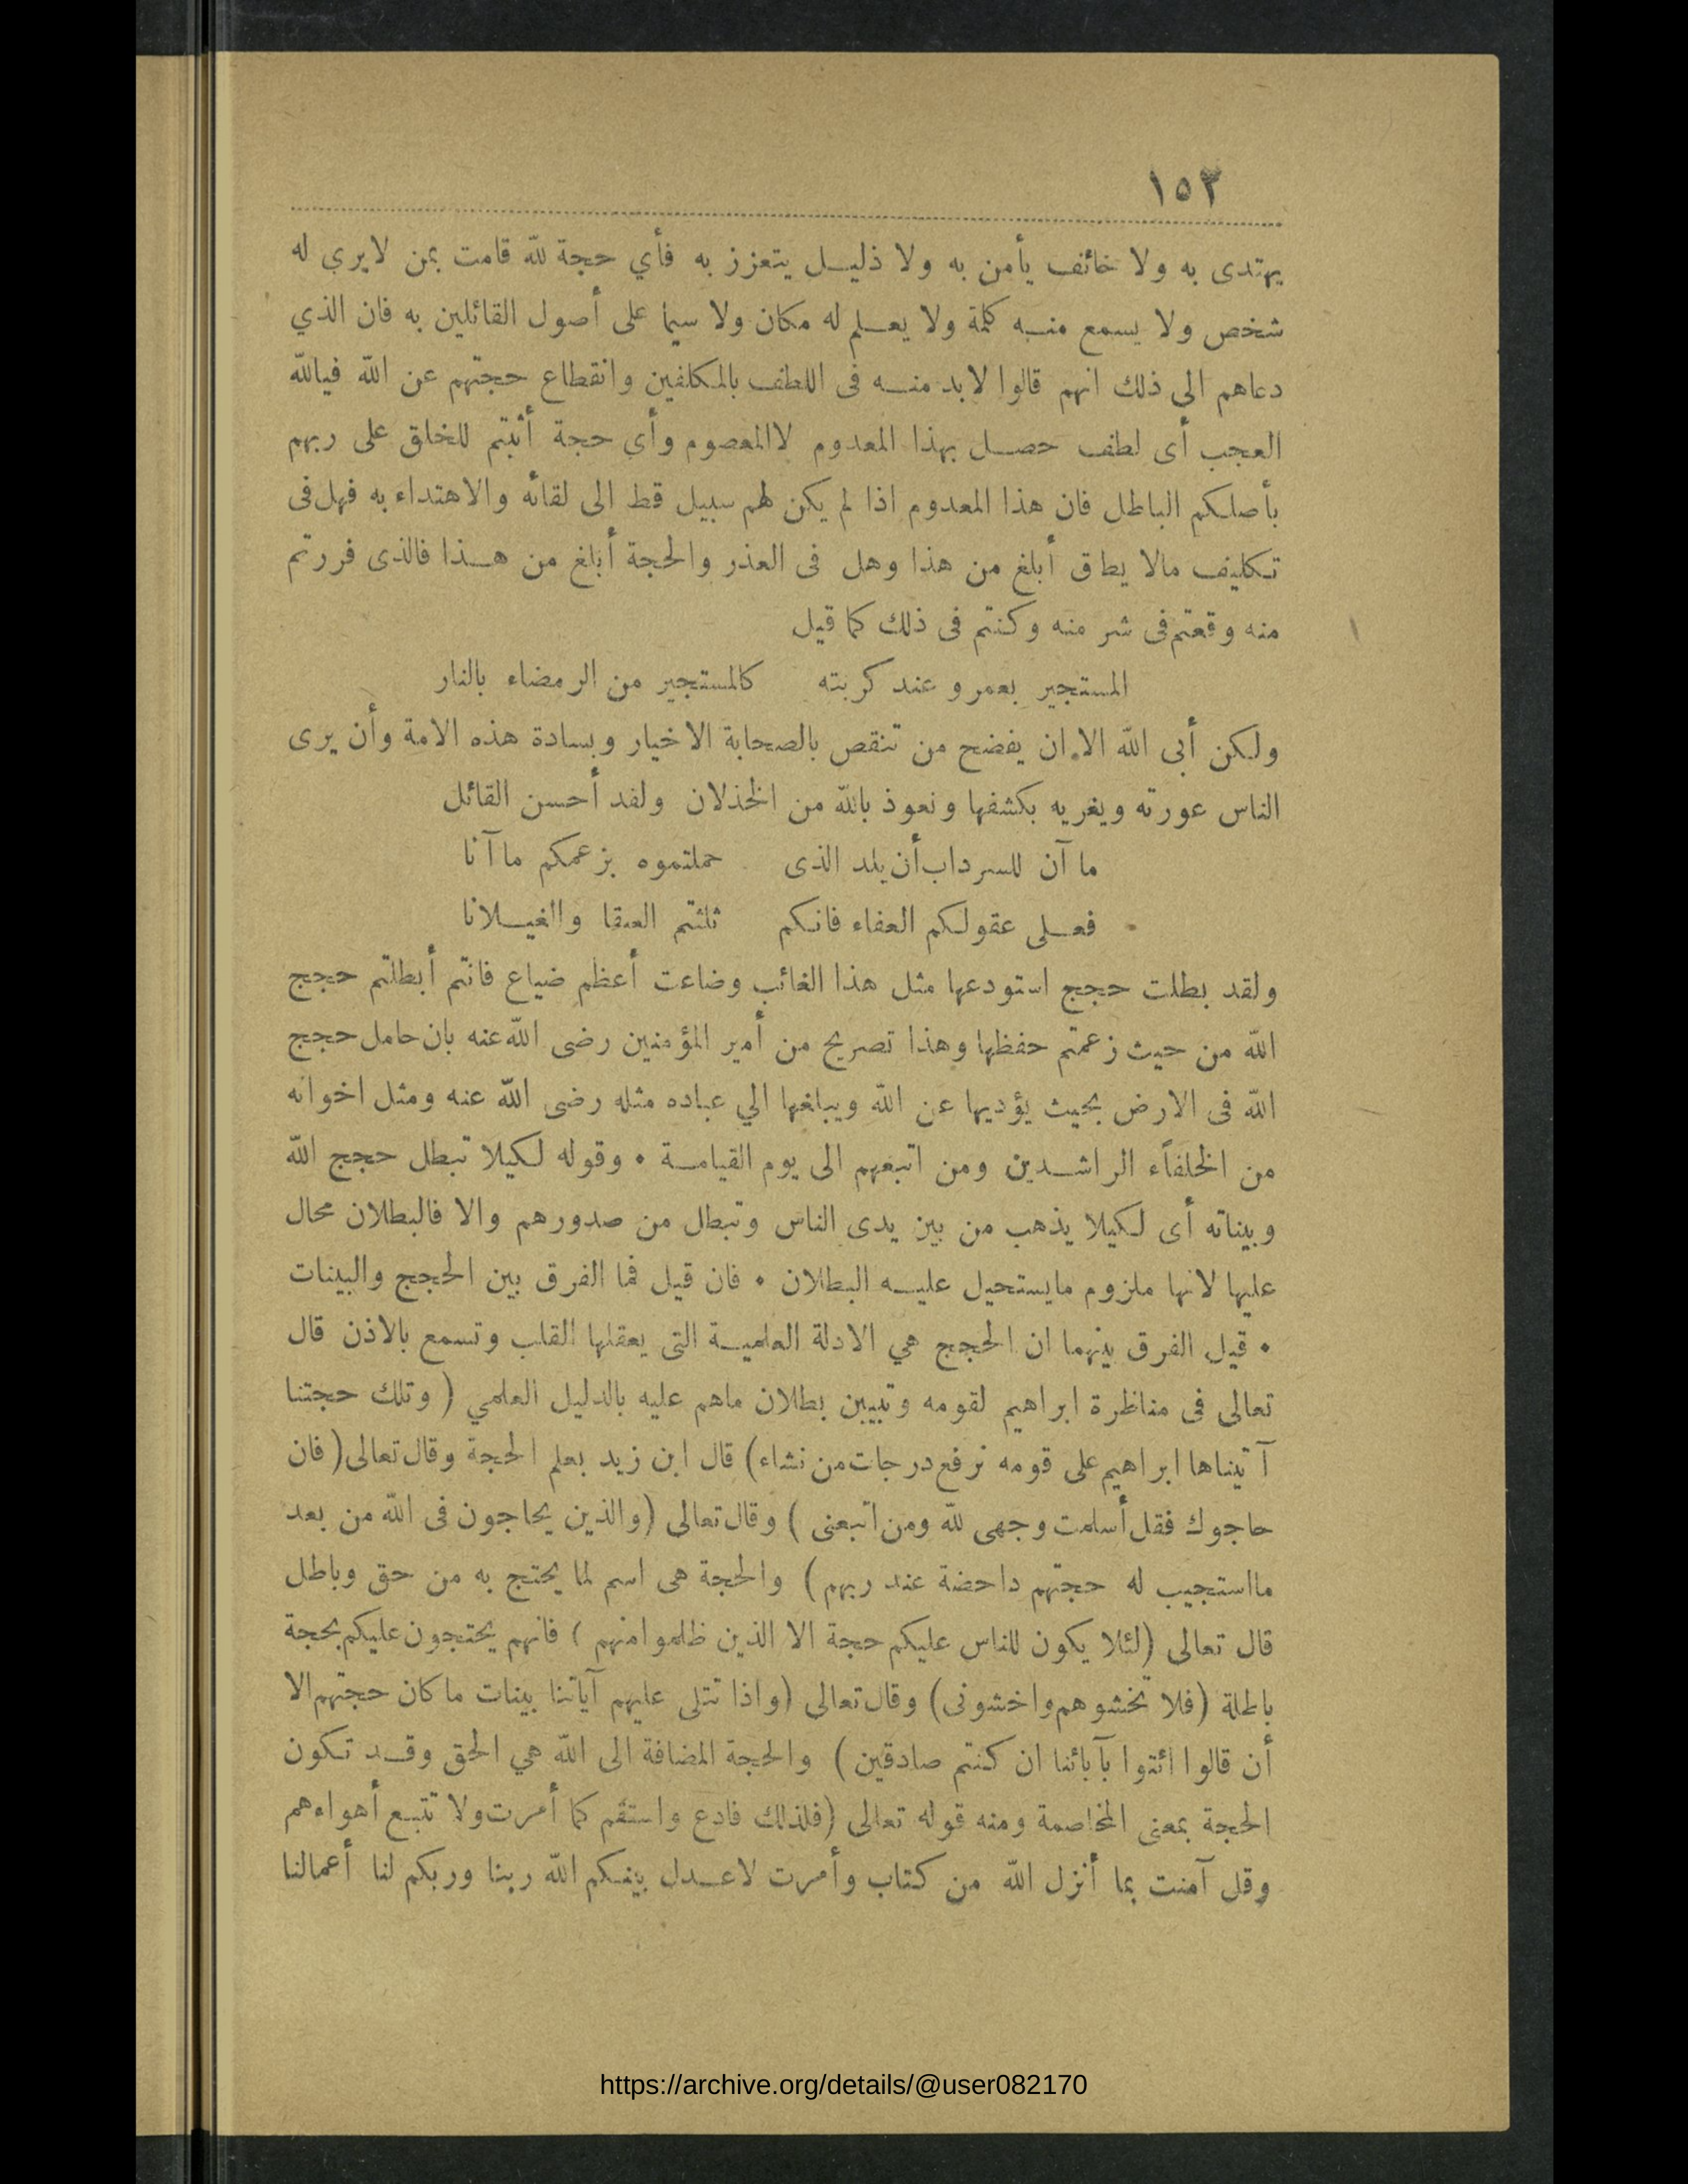 ١٥٣
يهتدى به ولا خائف يأمن به ولا ذليل يتعزز به فأي حجة لله قامت بمن لايري له
شخص ولا يسمع منه كلمة ولا يعلم له مكان ولا سيما على أصول القائلين به فان الذي
دعاهم الي ذلك انهم قالوا لابد منه فى اللطف بالمكلفين وانقطاع حجتهم عن الله فيالله
العجب أى لطف حصل بهذا المعدوم لاالمعصوم وأي حجة أثبتم للخلق على ربهم
بأصلكم الباطل فان هذا المعدوم اذا لم يكن لهم سبيل قط الى لقائه والاهتداء به فهل فى
تكليف مالا يطاق أبلغ من هذا وهل فى العذر والحجة أبلغ من هذا فالذى فررتم
منه وقعتم فى شر منه وكنتم فى ذلك كما قيل
المستجير بعمرو عند كربته كالمستجير من الرمضاء بالنار
ولكن أبى الله الا ان يفضح من تنقص بالصحابة الاخيار وبسادة هذه الامة وأن يرى
الناس عورته ويغريه بكشفها ونعوذ بالله من الخذلان ولفد أحسن القائل
ما آن للسرداب أن يلد الذى حملتموه بزعمكم ما آنا
فعلى عقولكم العفاء فانكم ثلثتم العنقا والغيلانا
ولقد بطلت حجج استودعها مثل هذا الغائب وضاعت أعظم ضياع فانتم أبطلتم حجج
الله من حيث زعمتم حفظها وهذا تصريح من أمير المؤمنين رضى الله عنه بان حامل حجج
الله فى الارض بحيث يؤديها عن الله ويبلغها الي عباده مثله رضى الله عنه ومثل اخوانه
من الخلفاء الراشدين ومن اتبعهم الى يوم القيامة • وقوله لكيلا تبطل حجج الله
وبيناته أى لكيلا يذهب من بين يدى الناس وتبطل من صدورهم والا فالبطلان محال
عليها لانها ملزوم مايستحيل عليه البطلان • فان قيل فما الفرق بين الحجج والبينات
• قيل الفرق بينهما ان الحجج هي الادلة العلمية التى يعقلها القلب وتسمع بالاذن قال
تعالى فى مناظرة ابراهيم لقومه وتبيين بطلان ماهم عليه بالدليل العلمي ( وتلك حجتنا
آتيناها ابراهيم على قومه نرفع درجات من نشاء) قال ابن زيد بعلم الحجة وقال تعالى( فان
حاجوك فقل أسلمت وجهى لله ومن اتبعنى ) وقال تعالى (والذين يحاجون فى الله من بعد
مااستجيب له حجتهم داحضة عند ربهم ) والحجة هى اسم لما يحتج به من حق وباطل
قال تعالى (لئلا يكون للناس عليكم حجة الا الذين ظلموا منهم ) فانهم يحتجون عليكم بحجة
باطلة (فلا تخشوهم واخشونى) وقال تعالى (واذا تتلى عليهم آياتنا بينات ما كان حجتهم الا
أن قالوا ائتوا بآبائنا ان كنتم صادقين ) والحجة المضافة الى الله هي الحق وقد تكون
الحجة بمعنى المخاصمة ومنه قوله تعالى (فلذلك فادع واستقم كما أمرت ولا تتبع أهواءهم
وقل آمنت بما أنزل الله من كتاب وأمرت لاعدل بينكم الله ربنا وربكم لنا أعمالنا
https://archive.org/details/@user082170